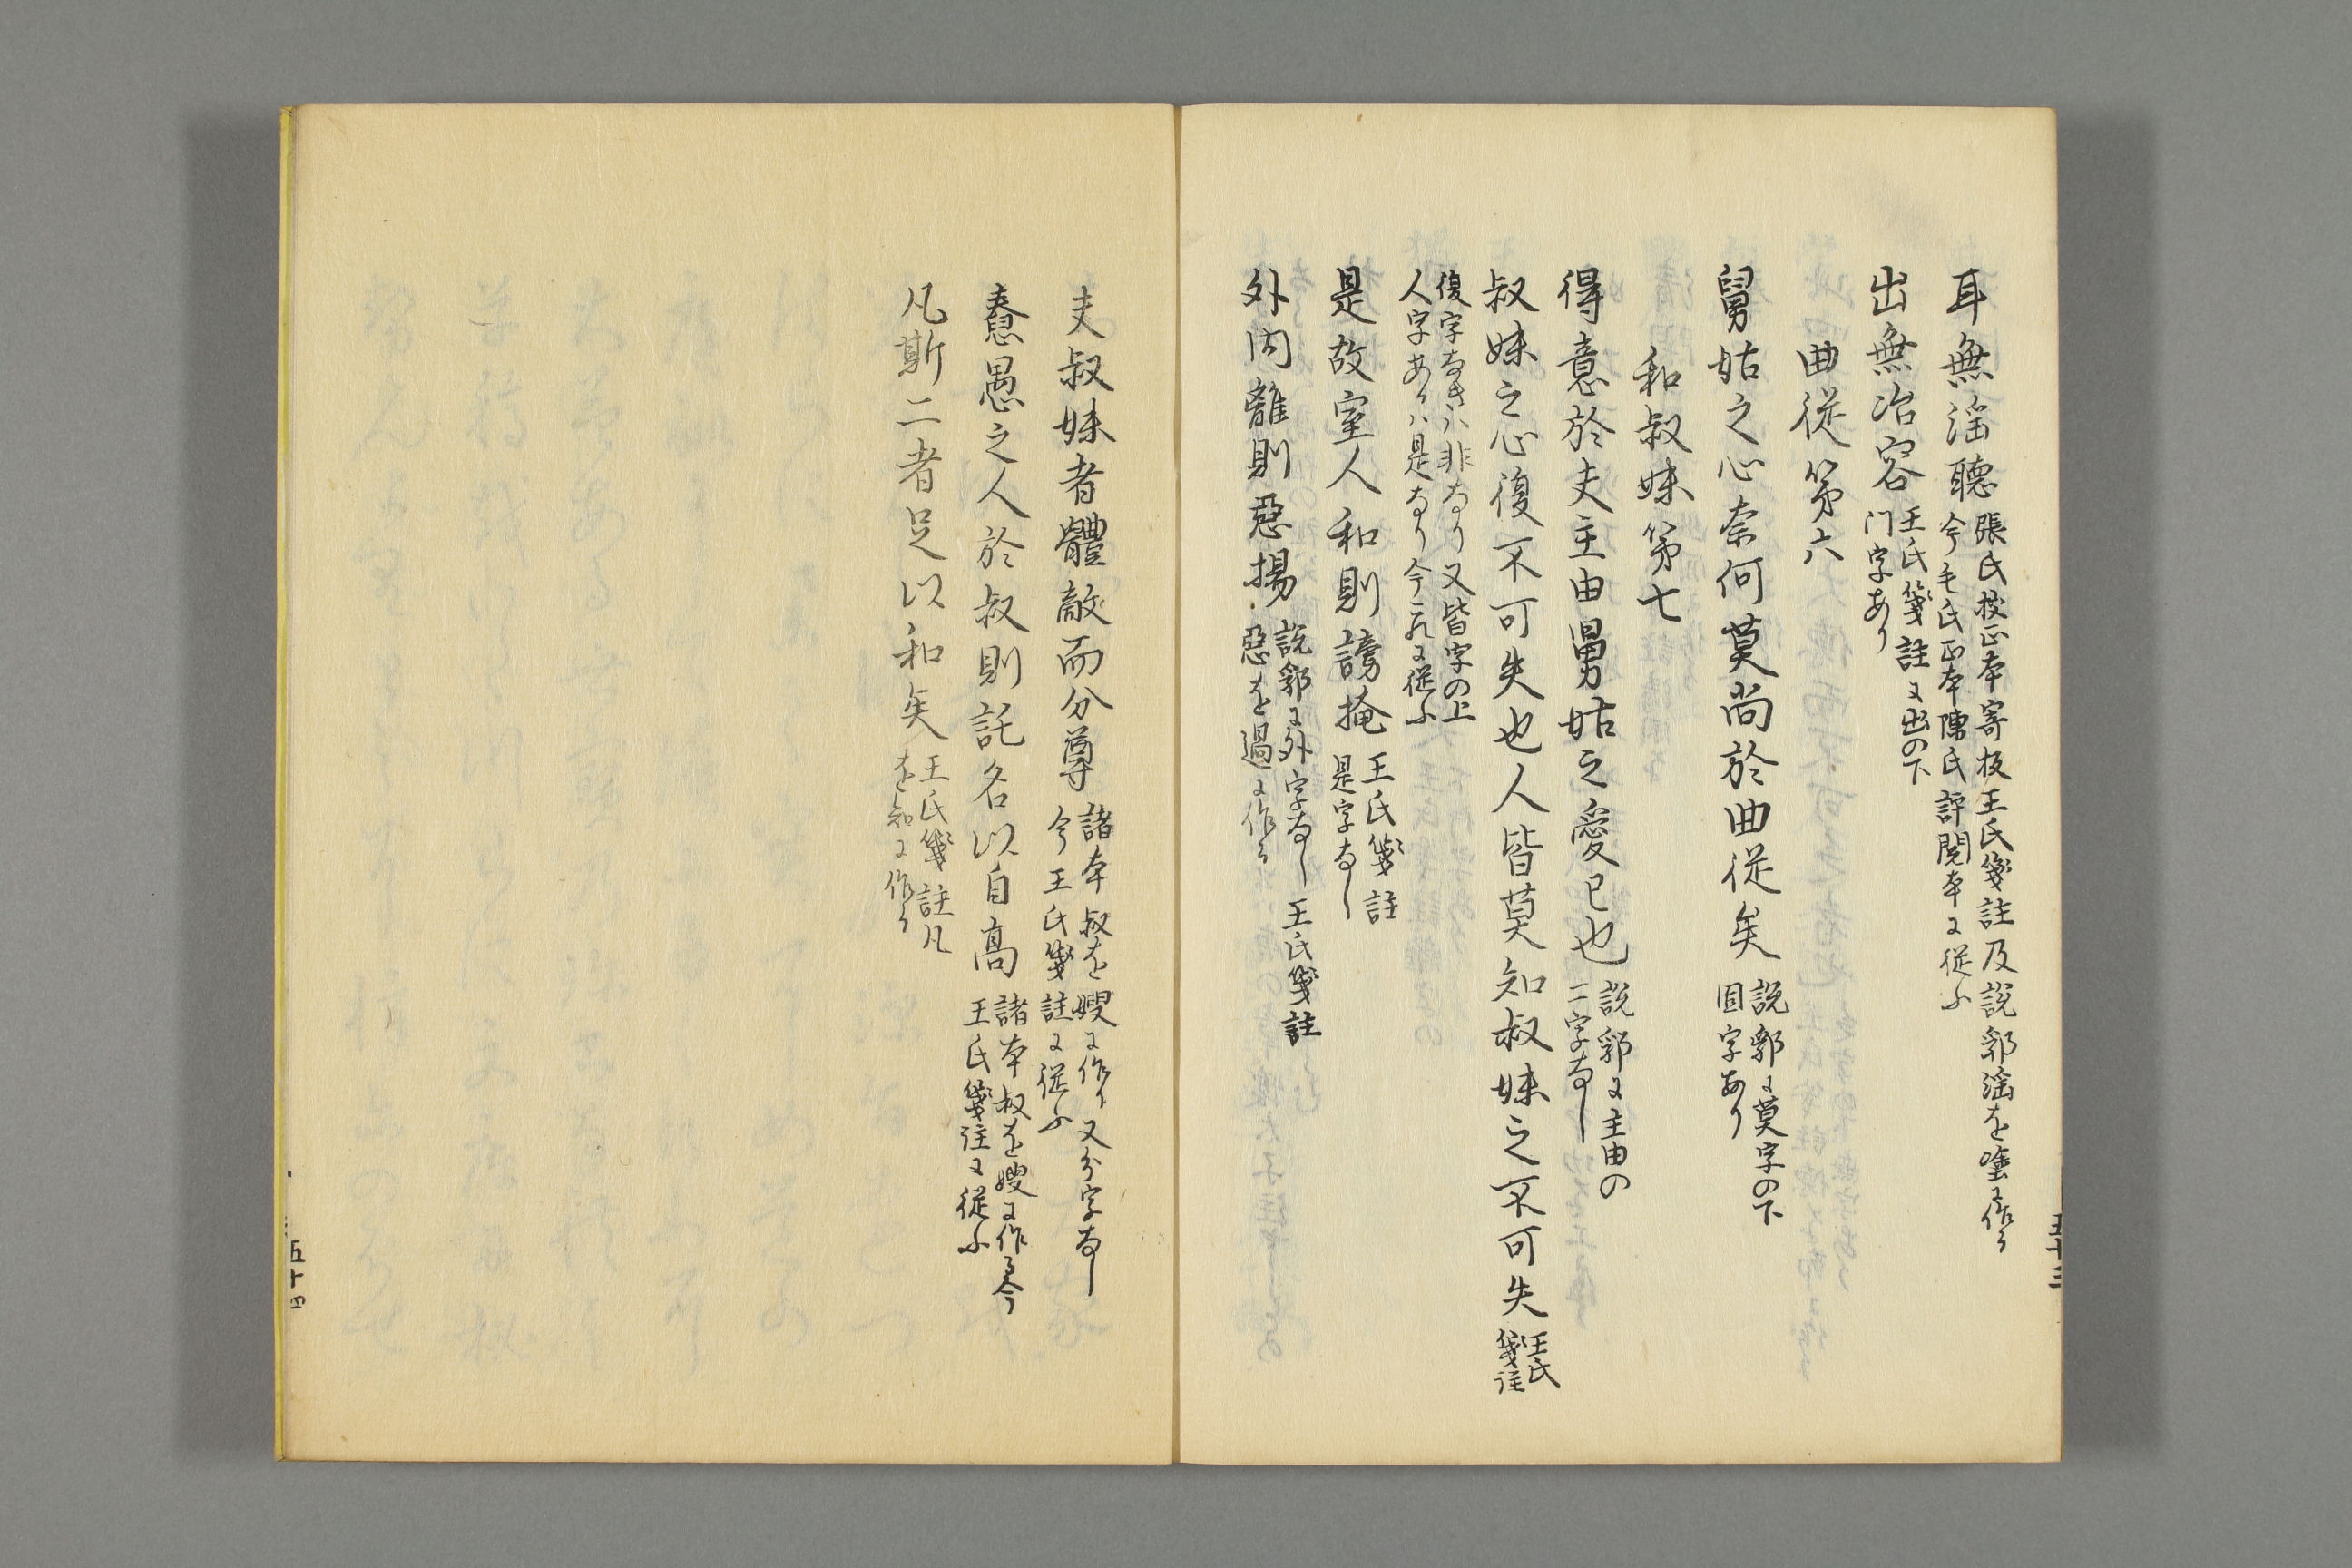 耳無淫聽 張氏校正本寄板王氏箋註及説郛淫を塗に作る
今毛氏正本陳氏評閲本に従ふ
出無冶容 王氏箋註に出の下
门字あり
曲従第六
舅姑之心奈何莫尚於曲従矣 説郛に莫字の下
固字あり
和叔妹第七
得意於夫主由舅姑之愛已也 説郛に主由の
二字なし
叔妹之心復不可失也人皆莫知叔妹之不可失 王氏
箋註
復字なきハ非なり又皆字の上
人字あるハ是なり今これに従ふ
是故室人和則謗掩 王氏箋註
是字なし
外内離則惡揚 説郛に外字なし王氏箋註
惡を過に作る
五十三
夫叔妹者體敵而分尊 諸本叔を嫂に作り又分字なし
今王氏箋註に従ふ
惷愚之人於叔則託名以自高 諸本叔を嫂に作る今
王氏箋注に従ふ
凡斯二者足以和矣 王氏箋註凡
を知に作る
五十四